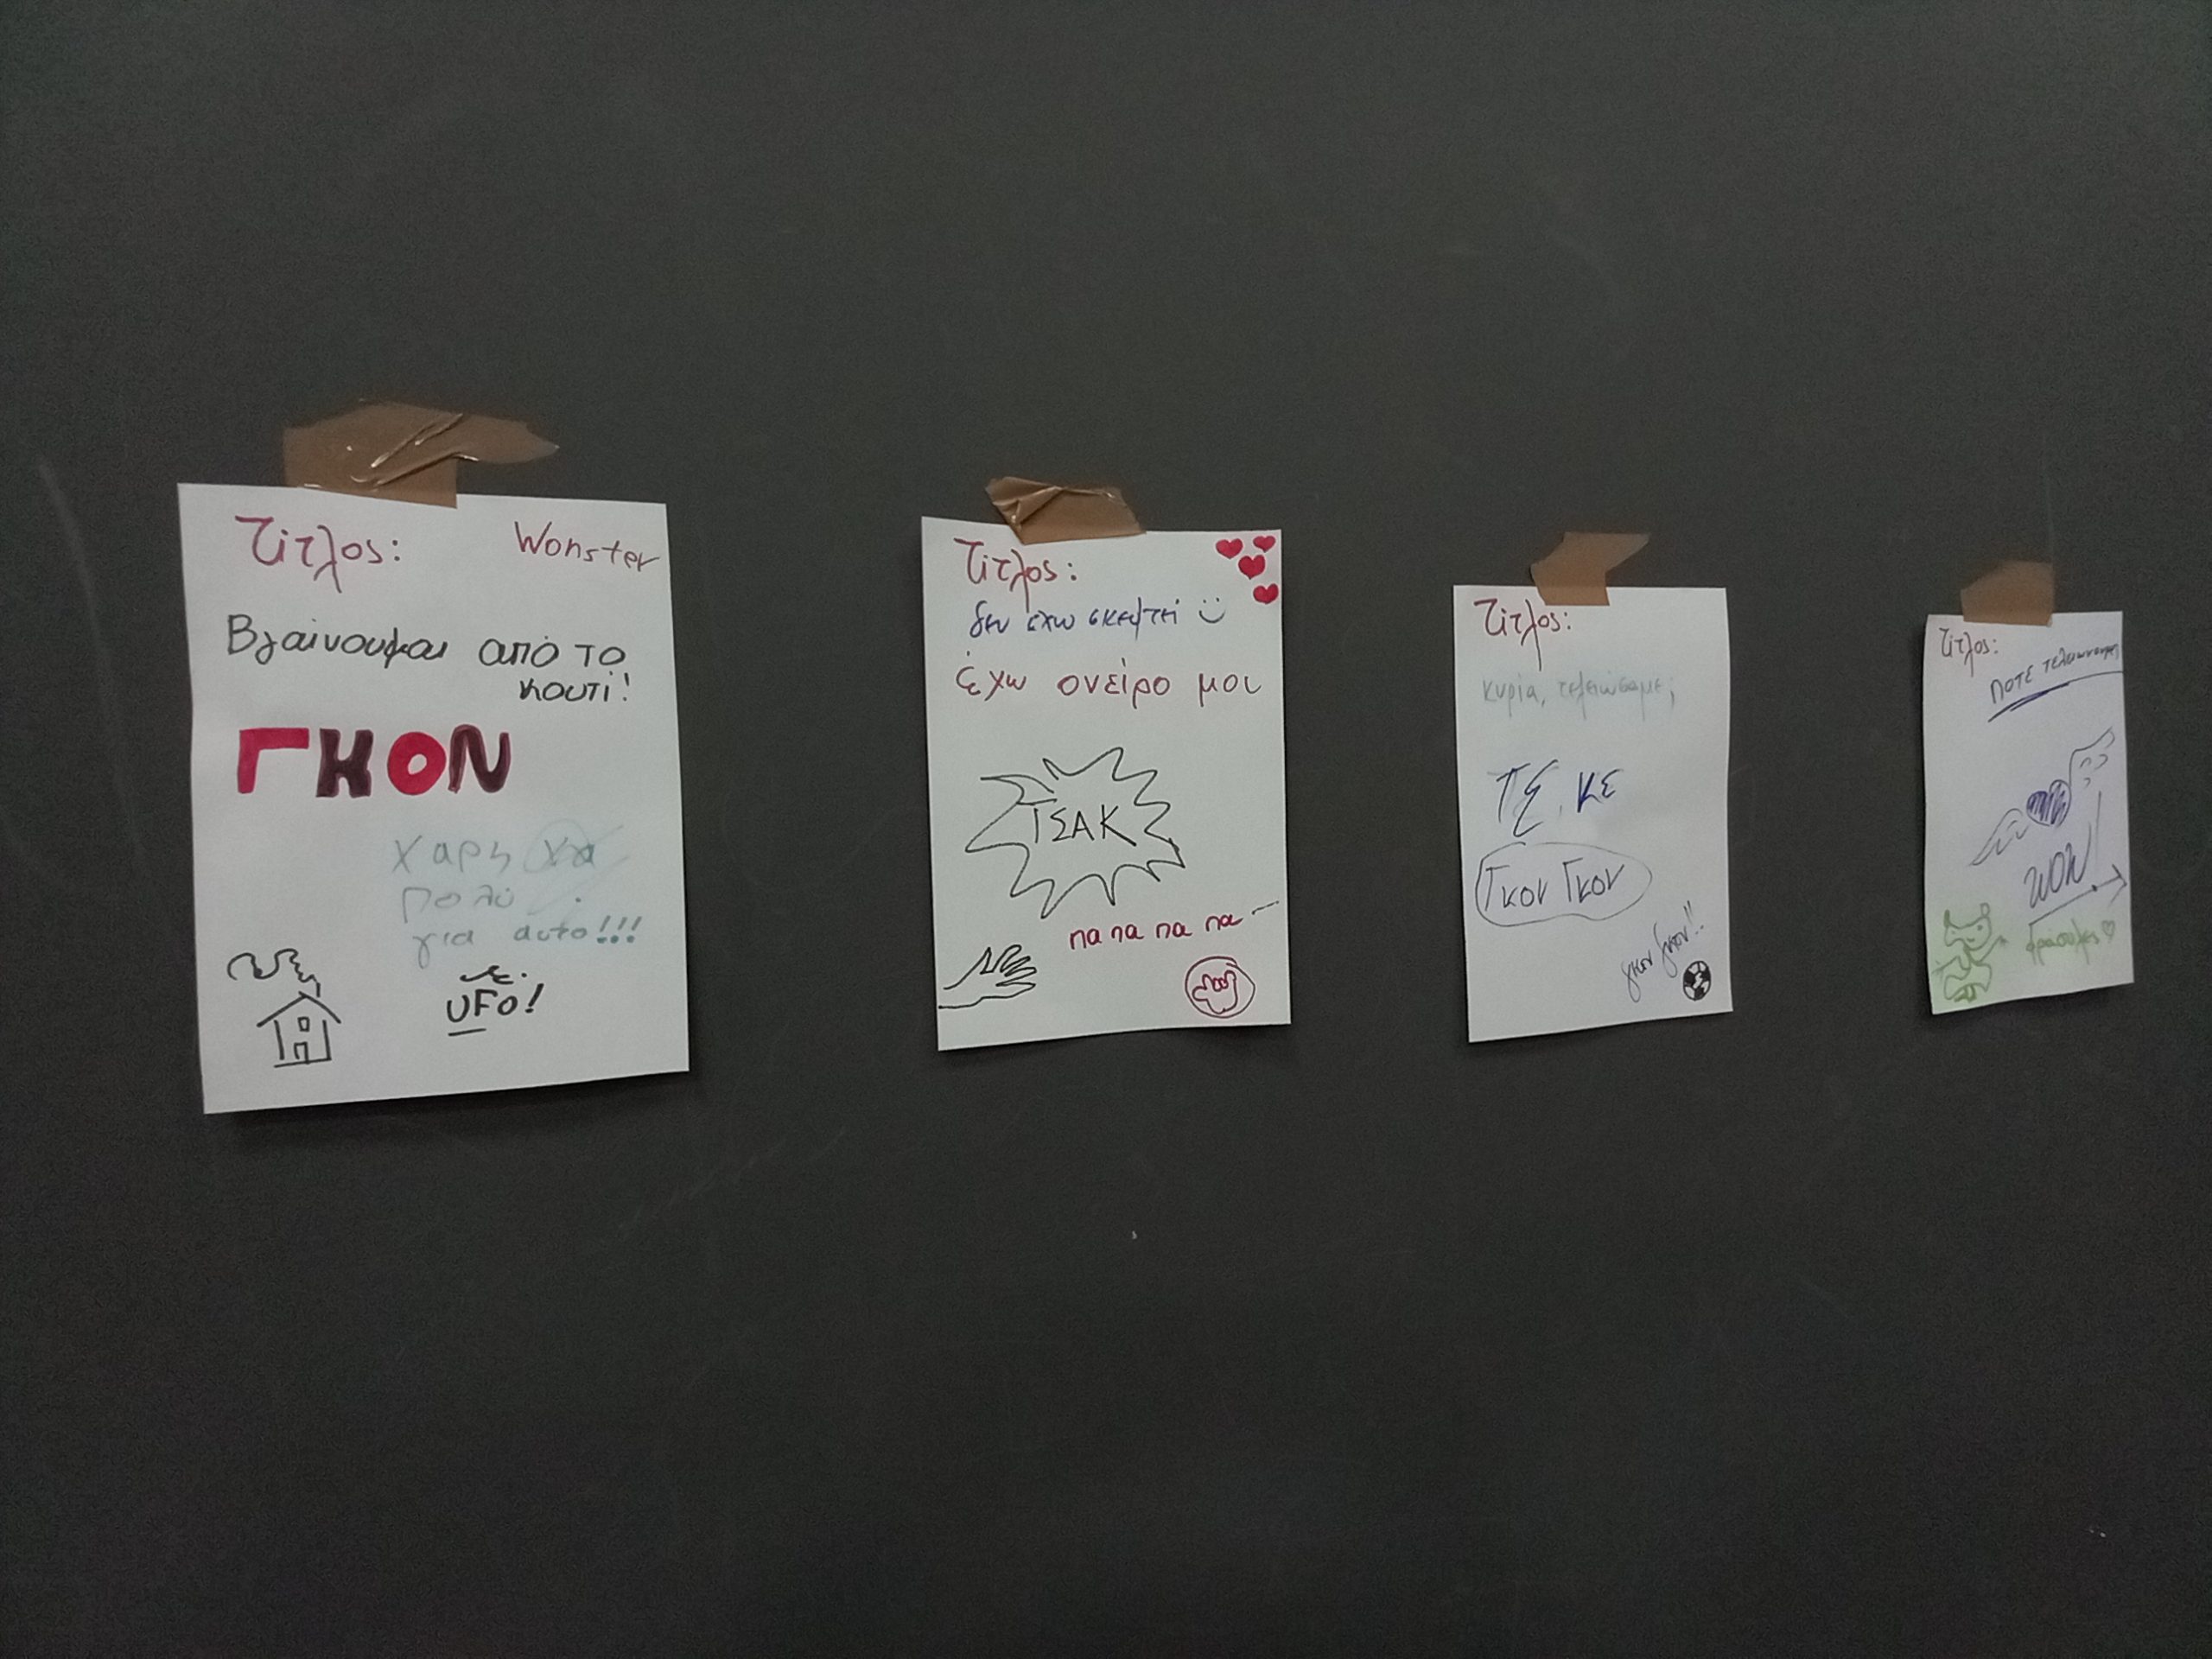 Τίτλος: Wonster
Βγαίνουμαι από το
κουτί!
ΓΚΟΝ
χαρη χα
πολύ
για αυτο!!!
UFO!
Τίτλος:
δεν έχω σκεφτεί
έχω ονείρο μου
ΤΣΑΚ
πα πα πα πα
Τίτλος:
κυρία, τελειώσαμε;
ΤΣ. ΚΕ
Γκον Γκον
γκον γκον!!
Τίτλος:
ΠΟΤΕ τελειώνουμε
WOW!